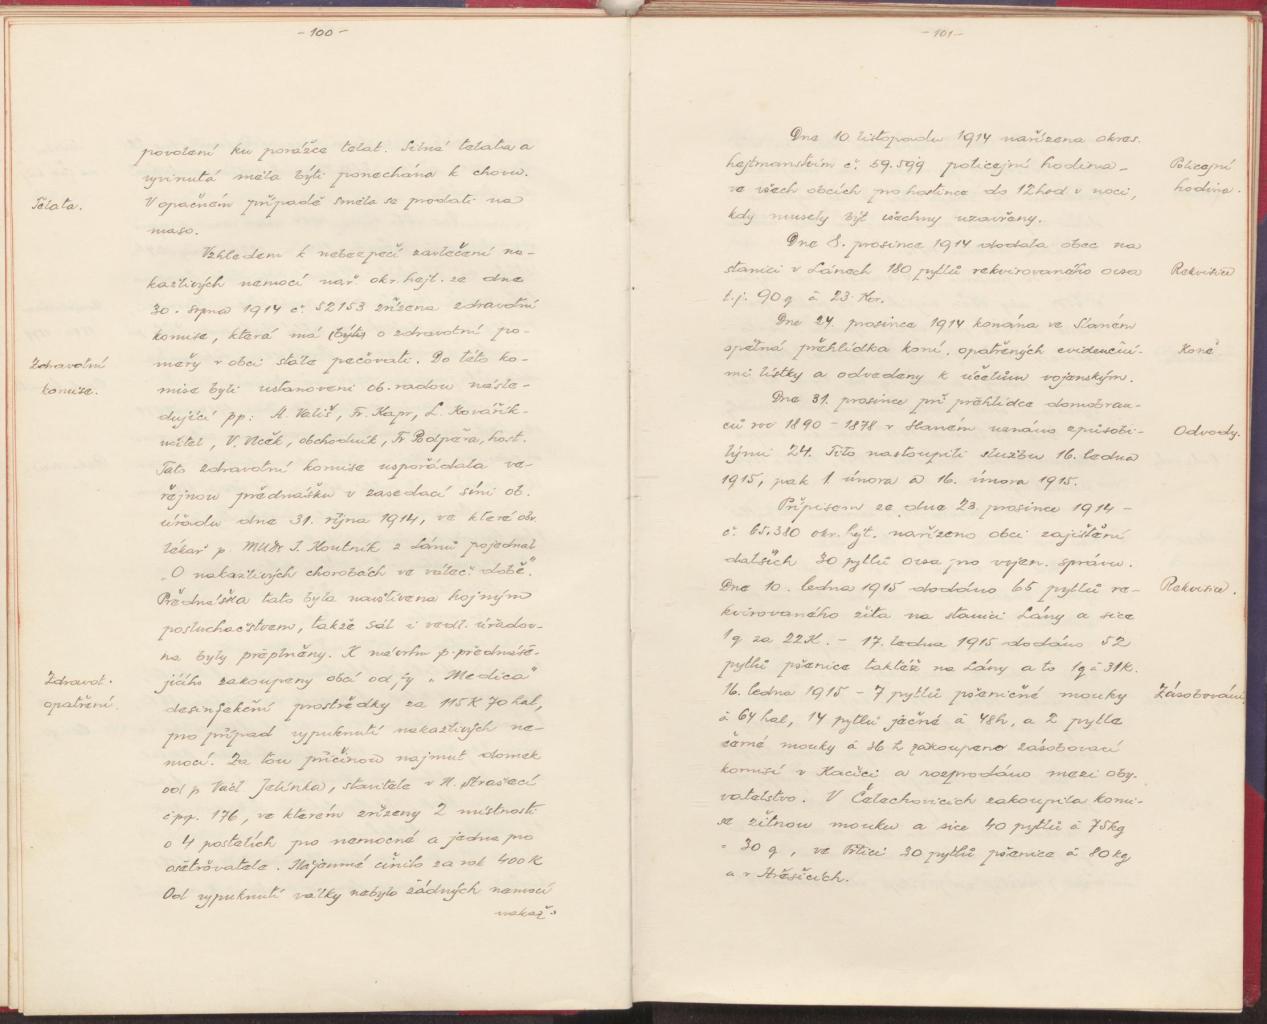 - 100 -
povolení ku porážce telat. Silná telata a
vyvinutá měla býti ponechána k chovu.
Telata.
V opačném případě směla se prodati na
maso.
Vzhledem k nebezpečí zavlečení na-
kažlivých nemocí nař. okr. hejt. ze dne
30. srpna 1914 č. 52153 zřízena zdravotní
komise, která má (býti) o zdravotní po-
měry v obci stále pečovati. Do této ko-
Zdravotní
komise.
mise byli ustanoveni ob. radou násle-
dující pp: A. Vališ, Fr. Kapr, L. Kovářík-
učitel, V. Vlček, obchodník, Fr. Podpěra, host.
Tato zdravotní komise uspořádala ve-
řejnou přednášku v zasedací síni ob.
úřadu dne 31. října 1914, ve které obv.
lékař p. MUDr J. Koutník z Lánů pojednal
„O nakažlivých chorobách ve váleč. době".
Přednáška tato byla navštívena hojným
posluchačstvem, takže sál i vedl. úřadov-
na byly přeplněny. K návrhu p. přednáše-
jícího zakoupeny obcí od fy „Medica"
Zdravot.
opatření.
desinfekční prostředky za 115 K 70 hal,
pro případ vypuknutí nakažlivých ne-
mocí. Za tou příčinou najmut domek
od p Václ Jelínka, stavitele v N. Strašecí
čpp. 176, ve kterém zřízeny 2 místnosti
o 4 postelích pro nemocné a jedna pro
ošetřovatele. Nájemné činilo za rok 400 K
Od vypuknutí války nebylo žádných nemocí
nakaž-
- 101 -
Dne 10 listopadu 1914 nařízena okres.
hejtmanstvím č. 59.599 policejní hodina -
Policejní
hodina.
ve všech obcích pro hostince do 12 hod v noci,
kdy musely být všechny uzavřeny.
Dne 8. prosince 1914 dodala obec na
stanici v Lánech 180 pytlů rekvirovaného ovsa
Rekvisice
t.j. 90 q à 23 Kor.
Dne 24. prosince 1914 konána ve Slaném
opětná přehlídka koní, opatřených evidenční-
Koně
mi lístky a odvedeny k účelům vojenským.
Dne 31. prosince při přehlídce domobran-
ců roč 1890 - 1878 v Slaném uznáno způsobi-
Odvody.
lými 24. Tito nastoupili službu 16. ledna
1915, pak 1. února a 16. února 1915.
Přípisem ze dne 23. prosince 1914 -
č. 65.380 okr. hejt. nařízeno obci zajištění
dalších 30 pytlů ovsa pro vojen. správu.
Dne 10. ledna 1915 dodáno 65 pytlů re-
Rekvisice.
kvirovaného žita na stanici Lány a sice
1 q za 22 K. - 17. ledna 1915 dodáno 52
pytlů pšenice taktéž na Lány a to 1 q à 31 K.
16. ledna 1915 - 7 pytlů pšeničné mouky
Zásobování
à 64 hal, 14 pytlů ječné à 48 h, a 2 pytle
černé mouky à 36 h zakoupeno zásobovací
komisí v Kačici a rozprodáno mezi oby-
vatelstvo. V Čelechovicích zakoupila komi-
se žitnou mouku a sice 40 pytlů à 75 kg
= 30 q, ve Přtici 30 pytlů pšenice à 80 kg
a v Hřešicích.